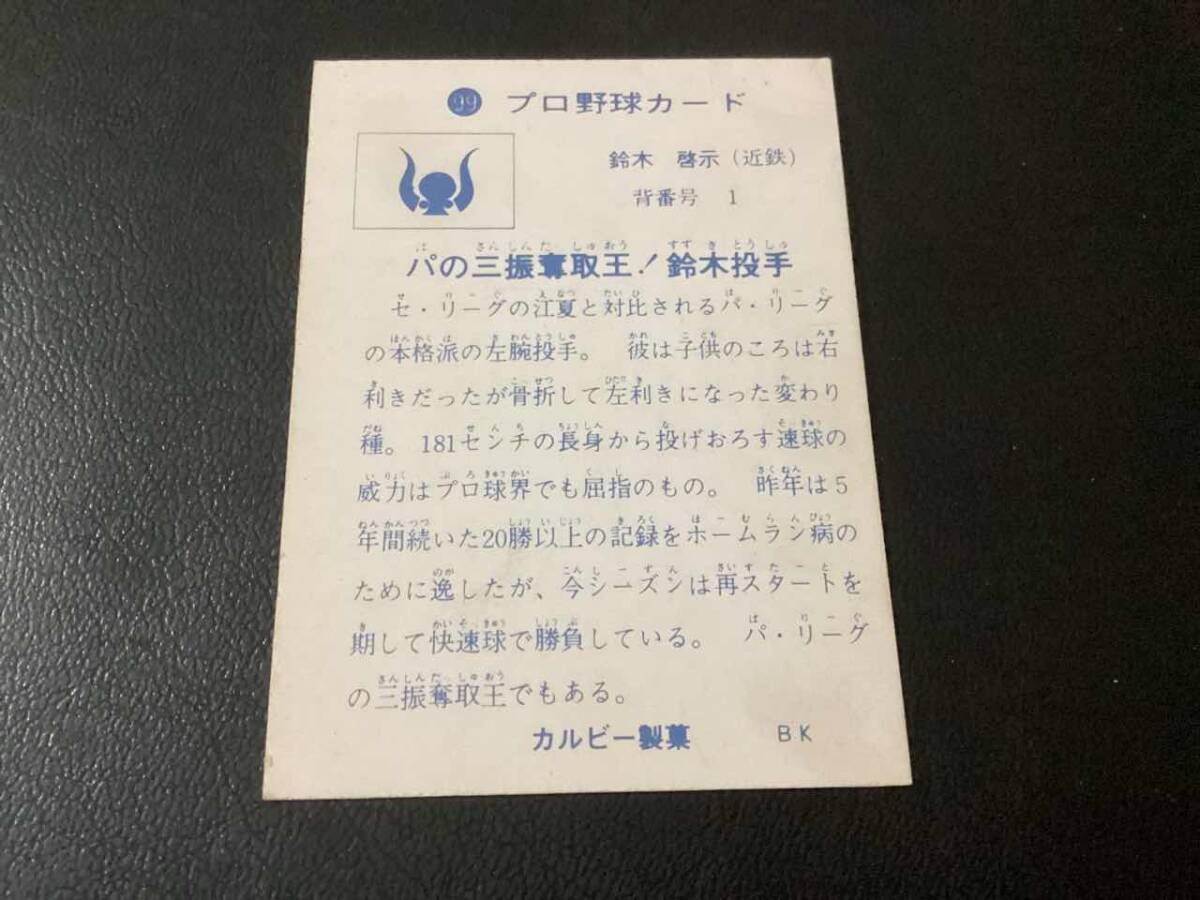 99 プロ野球カード
鈴木 啓示(近鉄)
背番号 1
パの三振奪取王!鈴木投手
セ・リーグの江夏と対比されるパ・リーグ
の本格派の左腕投手。 彼は子供のころは右
利きだったが骨折して左利きになった変わり
種。 181センチの長身から投げおろす速球の
威力はプロ球界でも屈指のもの。 昨年は5
年間続いた20勝以上の記録をホームラン病の
ために逸したが、今シーズンは再スタートを
期して快速球で勝負している。 パ・リーグ
の三振奪取王でもある。
カルビー製菓 BK